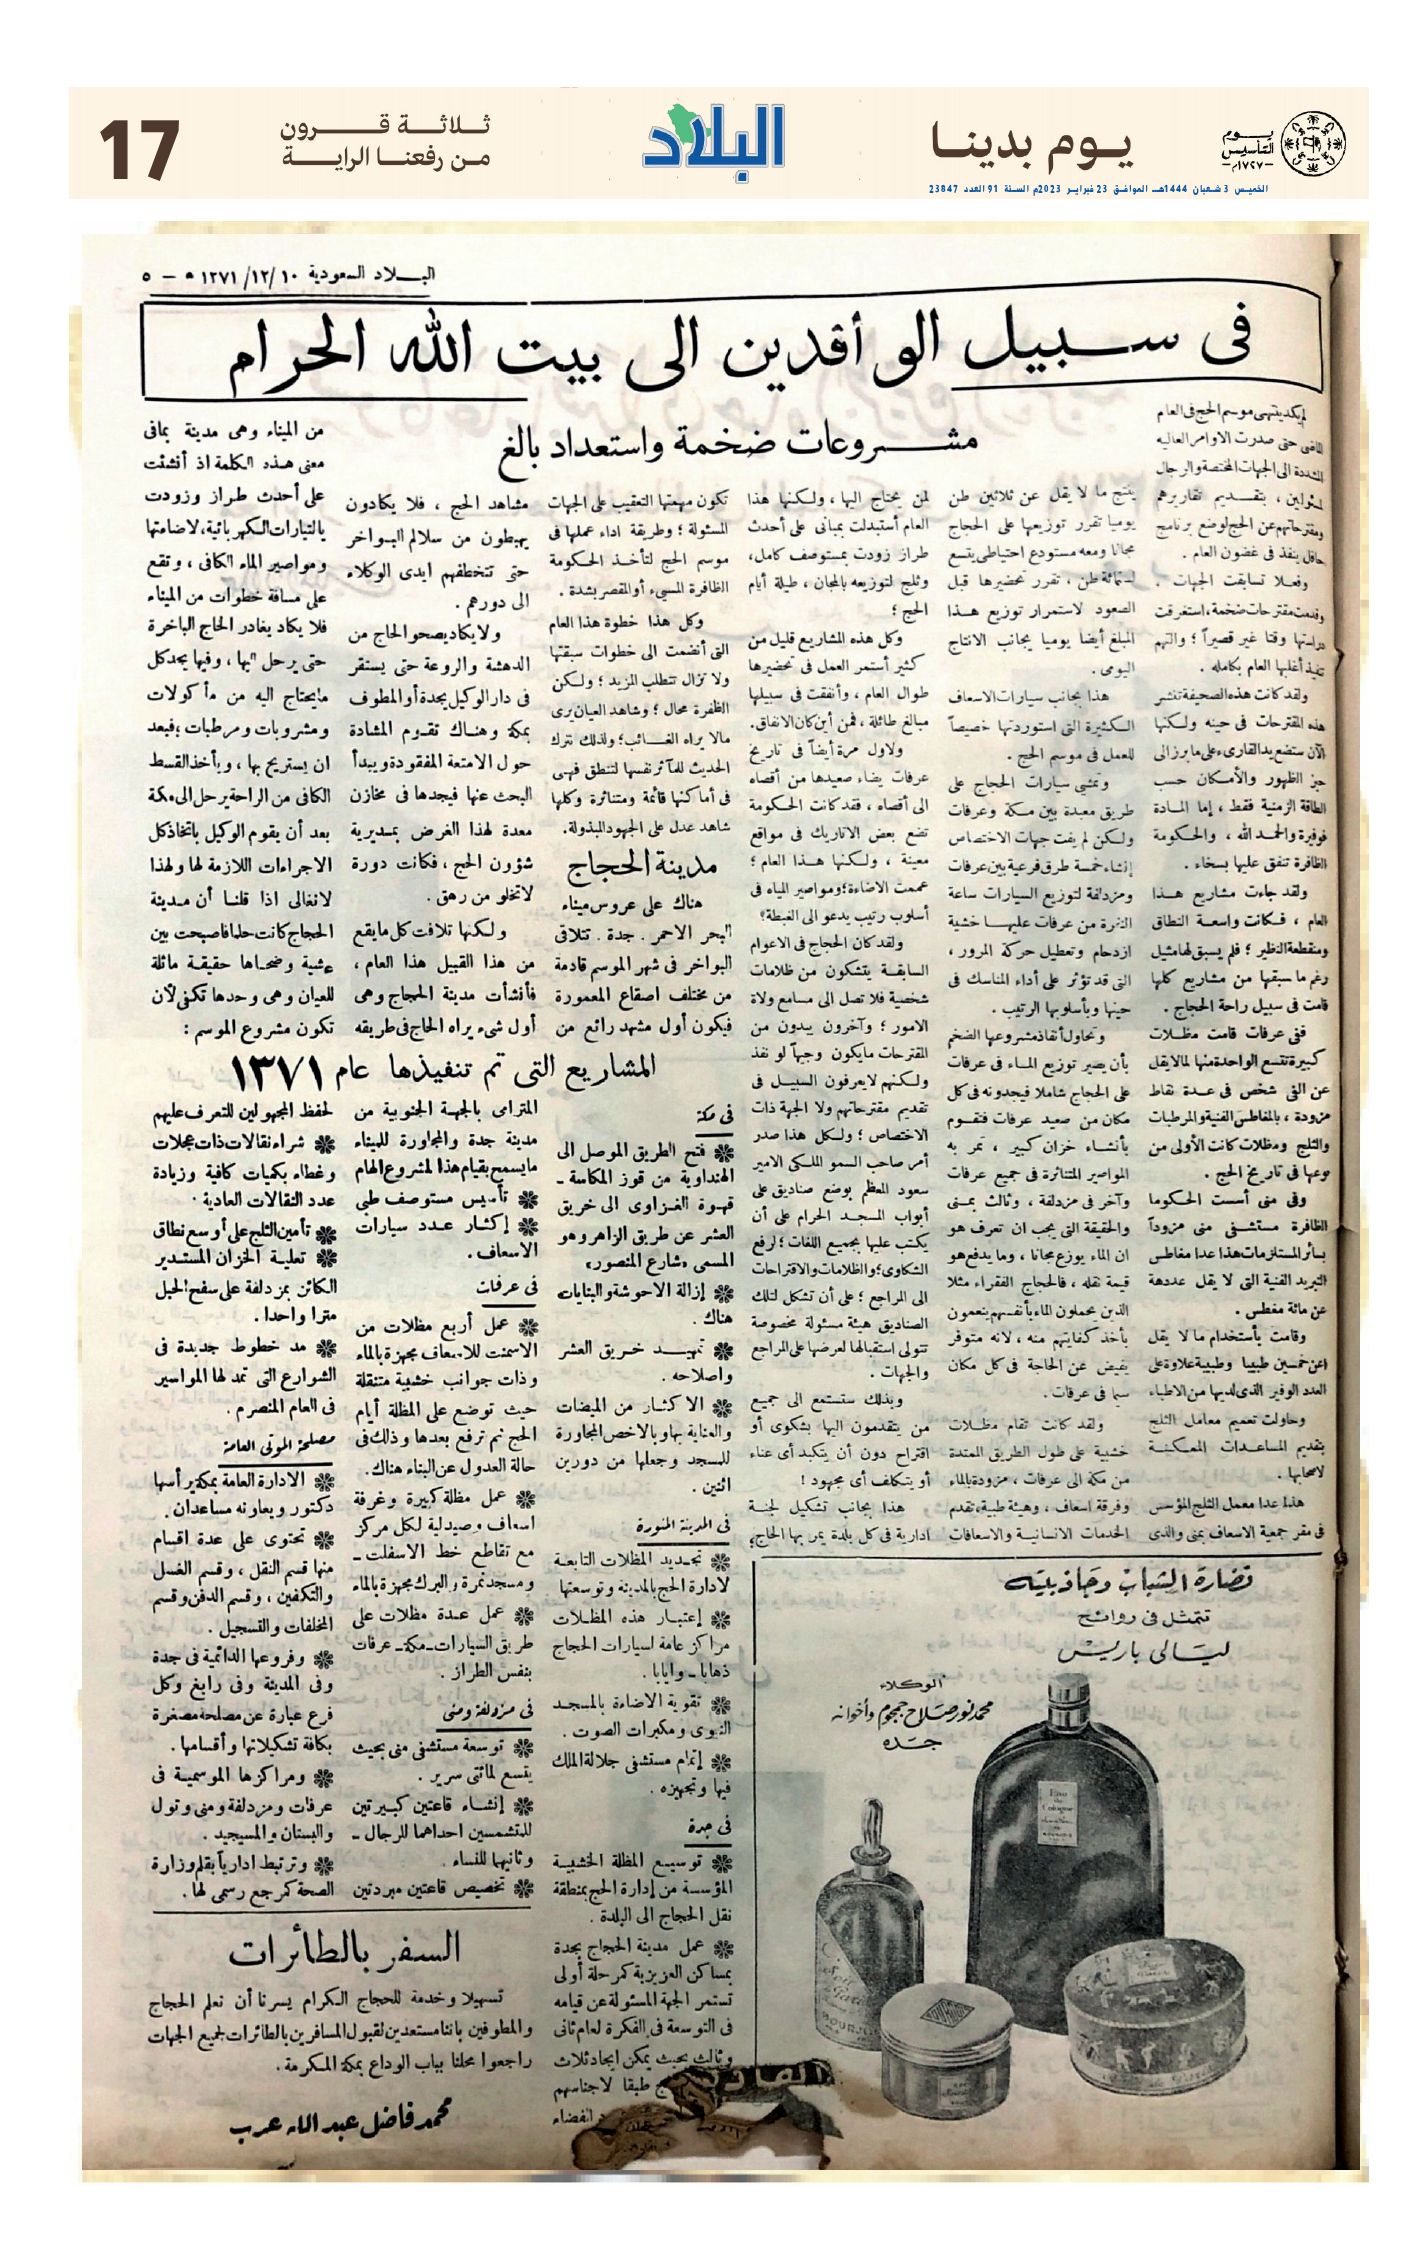 17
ثلاثة قرون
من رفعنا الراية
البلاد
يوم بدينا
يوم
التأسيس
١٧٢٧م
الخميس 3 شعبان 1444هـ الموافق 23 فبراير 2023م السنة 91 العدد 23847
البلاد السعودية ١٠/١٢/١٣٧١ ه — ٥
فى سبيل الوافدين الى بيت الله الحرام
مشروعات ضخمة واستعداد بالغ
لم يكد ينتهى موسم الحج فى العام
الماضى حتى صدرت الاوامر العاليه
المشددة الى الجهات المختصة والرجال
المسئولين ، بتقديم تقاريرهم
ومقترحاتهم عن الحج لوضع برنامج
حافل ينفذ فى غضون العام .
وفعلا تسابقت الجهات .
وقدمت مقترحات ضخمة ، استغرقت
دراستها وقتا غير قصيراً ؛ والتهم
تنفيذ أغلبها العام بكامله .
ولقد كانت هذه الصحيفة تنشر
هذه المقترحات فى حينه ولكنها
الآن ستضع يد القارىء على ما برز الى
حيز الظهور والأمكان حسب
الطاقة الزمنية فقط ، إما المادة
فوفيرة والحمد الله ، والحكومة
الظافرة تنفق عليها بسخاء .
ولقد جاءت مشاريع هذا
العام ، فكانت واسعة النطاق
ومنقطعة النظير ؛ فلم يسبق لها مثيل
رغم ما سبقها من مشاريع كلها
قامت فى سبيل راحة الحجاج .
ففى عرفات قامت مظلات
كبيرة تتسع الواحدة منها لما لا يقل
عن الفى شخص فى عدة نقاط
مزودة ، بالمغاطس الفنية والمرطبات
والثلج ومظلات كانت الأولى من
نوعها فى تاريخ الحج .
وفى منى أسست الحكوما
الظافرة مستشفى منى مزوداً
بسائر المستلزمات هذا عدا مغاطس
التبريد الفنية التى لا يقل عددها
عن مائة مغطس .
وقامت بأستخدام ما لا يقل
عن خمسين طبيبا وطبيبة علاوة على
العدد الوفير الذى لديها من الاطباء
وحاولت تعميم معامل الثلج
بتقديم المساعدات الممكنة
لاصحابها .
هذا عدا معمل الثلج المؤسس
فى مقر جمعية الاسعاف بمنى والذى
ينتج ما لا يقل عن ثلاثين طن
يوميا تقرر توزيعها على الحجاج
مجانا ومعه مستودع احتياطى يتسع
لستمائة طن ، تقرر تحضيرها قبل
الصعود لاستمرار توزيع هذا
المبلغ أيضا يوميا بجانب الانتاج
اليومى .
هذا بجانب سيارات الاسعاف
الكثيرة التى استوردتها خصيصاً
للعمل فى موسم الحج .
وتمشى سيارات الحجاج على
طريق معبدة بين مكة وعرفات
ولكن لم يفت جهات الاختصاص
إنشاء خمسة طرق فرعية بين عرفات
ومزدلفة لتوزيع السيارات ساعة
النفرة من عرفات عليها خشية
ازدحام وتعطيل حركة المرور ،
التى قد تؤثر على أداء المناسك فى
حينها وبأسلوبها الرتيب .
وتحاول أنفاذ مشروعها الضخم
بأن يصير توزيع الماء فى عرفات
على الحجاج شاملا فيجدونه فى كل
مكان من صعيد عرفات فتقوم
بأنشاء خزان كبير ، تمر به
المواصير المتناثرة فى جميع عرفات
وآخر فى مزدلفة ، وثالث بمنى
والحقيقة التى يجب ان تعرف هو
ان الماء يوزع مجانا ، وما يدفع هو
قيمة نقله ، فالحجاج الفقراء مثلا
الذين يحملون الماء بأنفسهم ينعمون
بأخذ كفايتهم منه ، لانه متوفر
يفيض عن الحاجة فى كل مكان
سيما فى عرفات .
ولقد كانت تقام مظلات
خشبية على طول الطريق الممتدة
من مكة الى عرفات ، مزودة بالماء
وفرقة اسعاف ، وهيئة طبية ، تقدم
الخدمات الانسانية والاسعافات
لمن يحتاج اليها ، ولكنها هذا
العام أستبدلت بمبانى على أحدث
طراز زودت بمستوصف كامل ،
وثلج لتوزيعه بالمجان ، طيلة أيام
الحج ؛
وكل هذه المشاريع قليل من
كثير أستمر العمل فى تحضيرها
طوال العام ، وأنفقت فى سبيلها
مبالغ طائلة ، فمن أين كان الانفاق.
ولاول مرة أيضاً فى تاريخ
عرفات يضاء صعيدها من أقصاه
الى أقصاه ، فقد كانت الحكومة
تضع بعض الاتاريك فى مواقع
معينة ، ولكنها هذا العام ؛
عممت الاضاءة ؛ ومواصير المياه فى
أسلوب رتيب يدعو الى الغبطة ؟
ولقد كان الحجاج فى الاعوام
السابقة يتشكون من ظلامات
شخصية فلا تصل الى مسامع ولاة
الامور ؛ وآخرون يبدون من
المقترحات مايكون وجيهاً لو نفذ
ولكنهم لايعرفون السبيل فى
تقديم مقترحاتهم ولا الجهة ذات
الاختصاص ؛ ولكل هذا صدر
أمر صاحب السمو الملكى الامير
سعود المعظم بوضع صناديق على
أبواب المسجد الحرام على أن
يكتب عليها بجميع اللغات ؛ لرفع
الشكاوى ؛ والظلامات والاقتراحات
الى المراجع ؛ على أن تشكل لتلك
الصناديق هيئة مسئولة مخصوصة
تتولى استقبالها لعرضها على المراجع
والجهات .
وبذلك ستستمع الى جميع
من يتقدمون اليها بشكوى أو
اقتراح دون أن يتكبد أى عناء
أو يتكلف أى مجهود !
هذا بجانب تشكيل لجنة
ادارية فى كل بلدة يمر بها الحاج ؛
تكون مهمتها التعقيب على الجهات
المسئولة ؛ وطريقة اداء عملها فى
موسم الحج لتأخذ الحكومة
الظافرة المسيء أو المقصر بشدة .
وكل هذا خطوة هذا العام
التى أنضمت الى خطوات سبقتها
ولا تزال تتطلب المزيد ؛ ولكن
الظفرة محال ؛ وشاهد العيان يرى
مالا يراه الغائب ؛ ولذلك نترك
الحديث للمآثر نفسها لتنطق فهى
فى أماكنها قائمة ومتناثرة وكلها
شاهد عدل على الجهود المبذولة.
مدينة الحجاج
هناك على عروس ميناء
البحر الاحمر . جدة . تتلاقى
البواخر فى شهر الموسم قادمة
من مختلف اصقاع المعمورة
فيكون أول مشهد رائع من
مشاهد الحج ، فلا يكادون
يهبطون من سلالم البواخر
حتى تتخطفهم ايدى الوكلاء
الى دورهم .
ولا يكاد يصحو الحاج من
الدهشة والروعة حتى يستقر
فى دار الوكيل بجدة أو المطوف
بمكة وهناك تقوم المشادة
حول الامتعة المفقودة ويبدأ
البحث عنها فيجدها فى مخازن
معدة لهذا الغرض بمديرية
شؤون الحج ، فكانت دورة
لاتخلو من رهق .
ولكنها تلافت كل مايقع
من هذا القبيل هذا العام ،
فأنشأت مدينة الحجاج وهى
أول شىء يراه الحاج فى طريقه
من الميناء وهى مدينة بمافى
معنى هذه الكلمة اذ أنشئت
على أحدث طراز وزودت
بالتيارات الكهربائية، لاضاءتها
ومواصير الماء الكافى ، وتقع
على مسافة خطوات من الميناء
فلا يكاد يغادر الحاج الباخرة
حتى يرحل اليها ، وفيها يجد كل
مايحتاج اليه من مأكولات
ومشروبات ومرطبات ؛ فبعد
ان يستريح بها ، ويأخذ القسط
الكافى من الراحة يرحل الى مكة
بعد أن يقوم الوكيل باتخاذ كل
الاجراءات اللازمة لها ولهذا
لانغالى اذا قلنا أن مدينة
الحجاج كانت حلما فاصبحت بين
عشية وضحاها حقيقة ماثلة
للعيان وهى وحدها تكفى لأن
تكون مشروع الموسم :
المشاريع التى تم تنفيذها عام ١٣٧١
فى مكة
❋ فتح الطريق الموصل الى
الهنداوية من قوز المكاسة ـ
قهوة الغزاوى الى خريق
العشر عن طريق الزاهر وهو
المسمى «شارع المنصور»
❋ إزالة الاحوشة والبنايات
هناك .
❋ تمهيد خريق العشر
واصلاحه .
❋ الاكثار من الميضات
والعناية بها وبالاخص المجاورة
للمسجد وجعلها من دورين
اثنين .
فى المدينة المنورة
❋ تجديد المظلات التابعة
لادارة الحج بالمدينة وتوسعتها
❋ إعتبار هذه المظلات
مراكز عامة لسيارات الحجاج
ذهابا ـ وايابا .
❋ تقوية الاضاءة بالمسجد
النبوى ومكبرات الصوت .
❋ إتمام مستشفى جلالة الملك
فيها وتجهيزه .
فى جدة
❋ توسيع المظلة الخشبية
المؤسسة من إدارة الحج بمنطقة
نقل الحجاج الى البلدة .
❋ عمل مدينة الحجاج بجدة
بمساكن العزيزية كمرحلة أولى
تستمر الجهة المسئولة عن قيامه
فى التوسعة فى الفكرة لعام ثانى
وثالث بحيث يمكن ايجاد ثلاث
طبقا لاجناسهم
الفضاء
المترامى بالجهة الجنوبية من
مدينة جدة والمجاورة للميناء
مايسمح بقيام هذا المشروع الهام
❋ تأسيس مستوصف طبى
❋ إكثار عدد سيارات
الاسعاف .
فى عرفات
❋ عمل أربع مظلات من
الاسمنت للاسعاف مجهزة بالماء
وذات جوانب خشبية متنقلة
حيث توضع على المظلة أيام
الحج ثم ترفع بعدها وذلك فى
حالة العدول عن البناء هناك.
❋ عمل مظلة كبيرة وغرفة
اسعاف وصيدلية لكل مركز
مع تقاطع خط الاسفلت ـ
ومسجد نمرة والبرك مجهزة بالماء
❋ عمل عدة مظلات على
طريق السيارات ـ مكة ـ عرفات
بنفس الطراز .
فى مزدلفة ومنى
❋ توسعة مستشفى منى بحيث
يتسع لمائتى سرير .
❋ إنشاء قاعتين كبيرتين
للمتشمسين احداهما للرجال ـ
وثانيها للنساء .
❋ تخصيص قاعتين مبردتين
لحفظ المجهولين للتعرف عليهم
❋ شراء نقالات ذات عجلات
وغطاء بكميات كافية وزيادة
عدد النقالات العادية .
❋ تأمين الثلج على أوسع نطاق
❋ تعلية الخزان المستدير
الكائن بمزدلفة على سفح الجبل
مترا واحدا .
❋ مد خطوط جديدة فى
الشوارع التى تمد لها المواسير
فى العام المنصرم .
مصلحة الموتى العامة
❋ الادارة العامة بمكة يرأسها
دكتور ويعاونه مساعدان .
❋ تحتوى على عدة اقسام
منها قسم النقل ، وقسم الغسل
والتكفين ، وقسم الدفن وقسم
المخلفات والتسجيل .
❋ وفروعها الدائمية فى جدة
وفى المدينة وفى رابغ وكل
فرع عبارة عن مصلحة مصغرة
بكافة تشكيلاتها وأقسامها.
❋ ومراكزها الموسمية فى
عرفات ومزدلفة ومنى وتول
والبستان والمسيجيد .
❋ وترتبط ادارياً بقلم وزارة
الصحة كمرجع رسمى لها .
السفر بالطائرات
تسهيلا وخدمة للحجاج الكرام يسرنا أن نعلم الحجاج
والمطوفين باننا مستعدين لقبول المسافرين بالطائرات لجميع الجهات
راجعوا محلنا بباب الوداع بمكة المكرمة .
محمد فاضل عبد الله عرب
نضارة الشباب وجاذبيته
تتمثل فى روائح
ليالى باريس
الوكلاء
محمد نور صلاح جمجوم وأخوانه
جده
Eau
de
Cologne